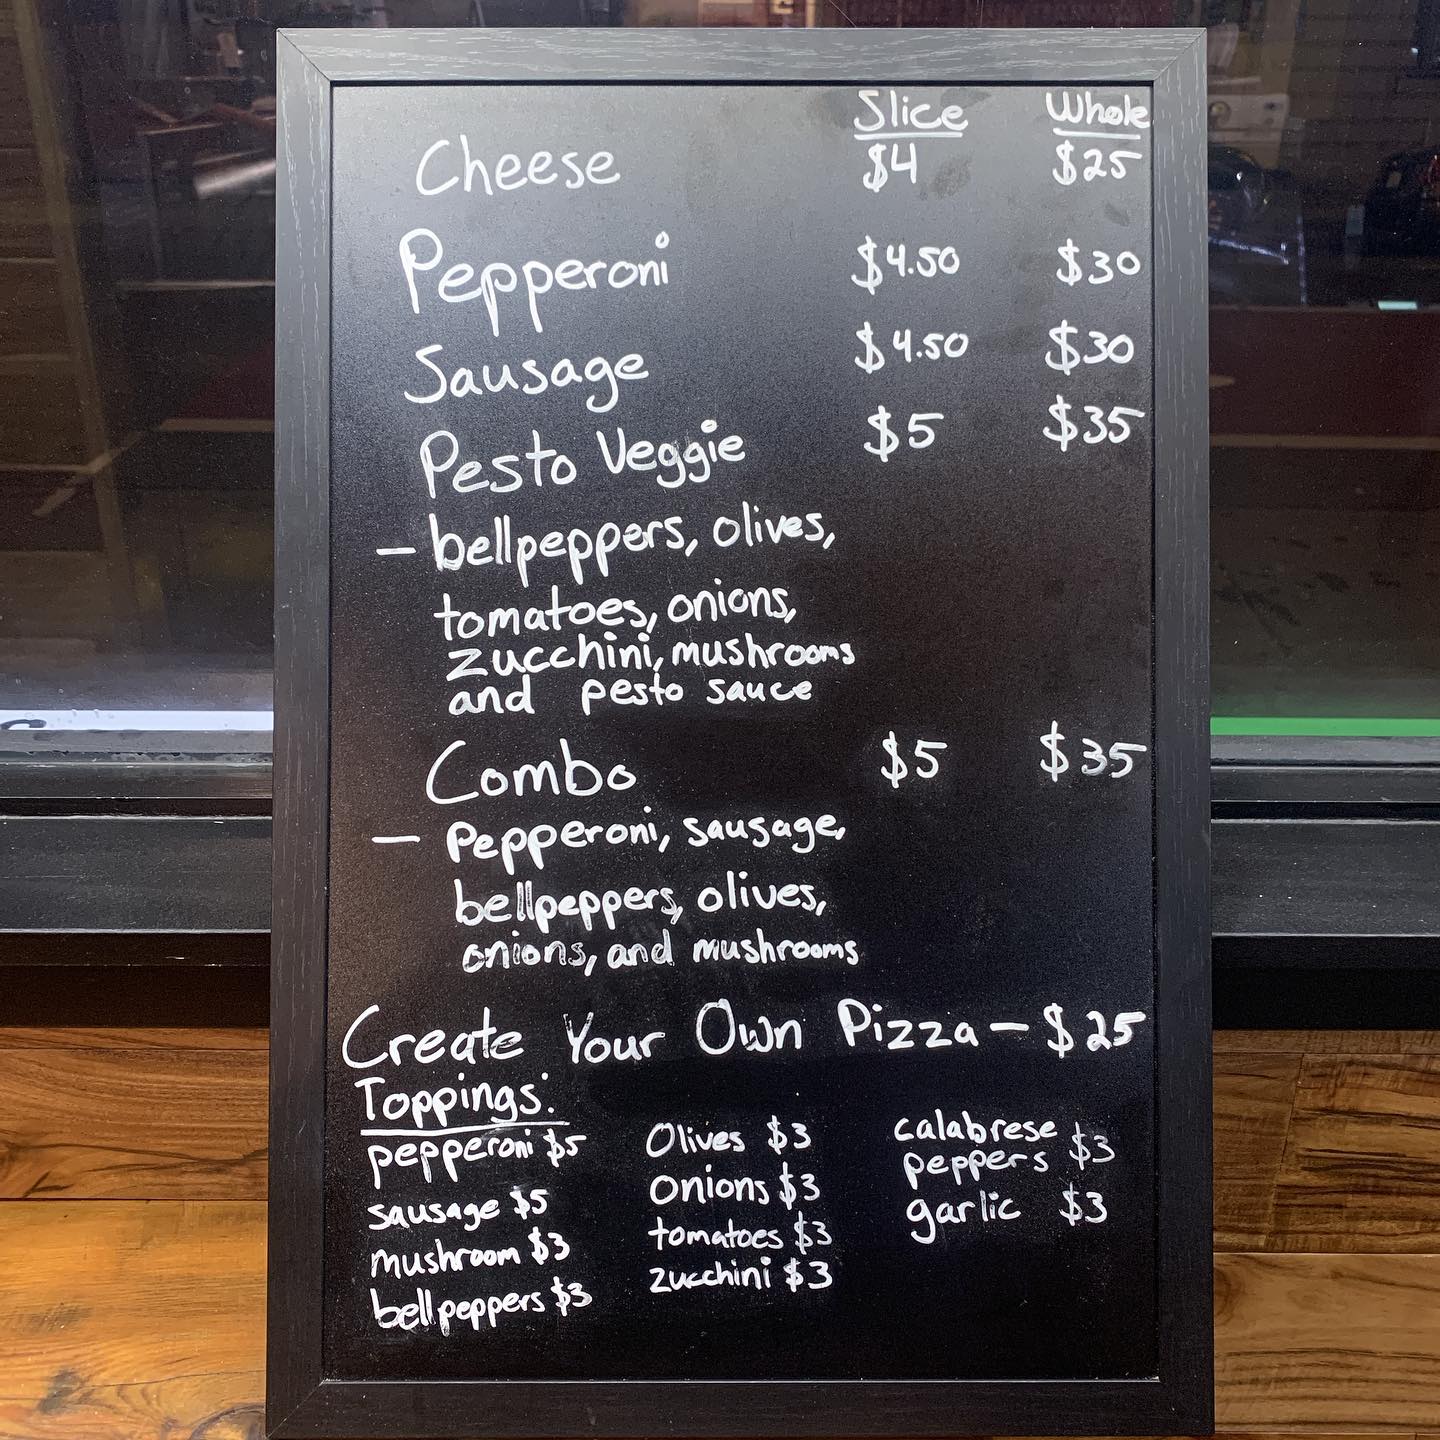 Slice Whole
Cheese $4 $25
Pepperoni $4.50 $30
Sausage $4.50 $30
Pesto Veggie $5 $35
- bellpeppers, olives,
tomatoes, onions,
zucchini, mushrooms
and pesto sauce
Combo $5 $35
- Pepperoni, sausage,
bellpeppers, olives,
onions, and mushrooms
Create Your Own Pizza - $25
Toppings:
pepperoni $5
sausage $5
mushroom $3
bellpeppers $3
Olives $3
Onions $3
tomatoes $3
zucchini $3
calabrese
peppers $3
garlic $3